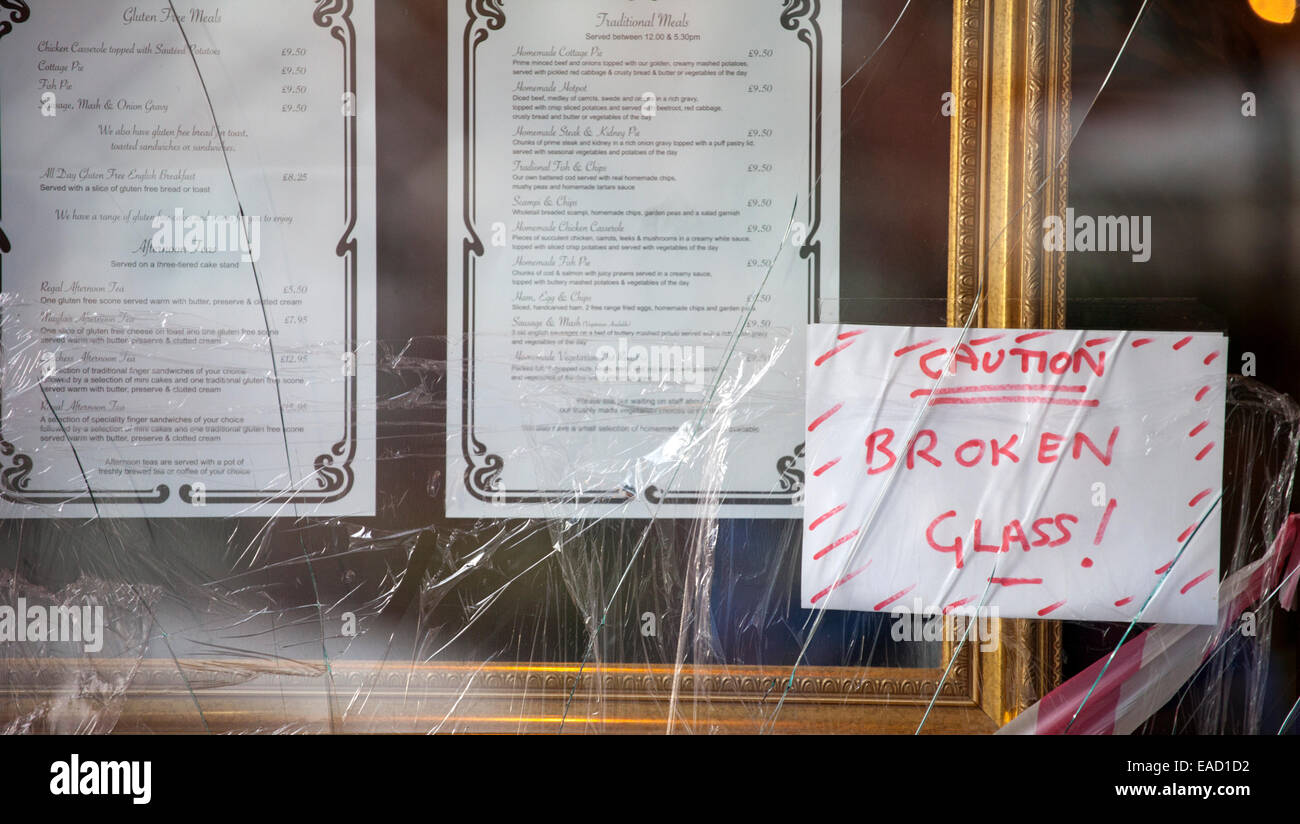 Gluten Free Meals
Chicken Casserole topped with Sautéed Potatoes £9.50
Cottage Pie £9.50
Fish Pie £9.50
Sausage, Mash & Onion Gravy £9.50
We also have gluten free bread for toast,
toasted sandwiches or sandwiches.
All Day Gluten Free English Breakfast £8.25
Served with a slice of gluten free bread or toast
We have a range of gluten to enjoy
Afternoon Teas
Served on a three-tiered cake stand
Regal Afternoon Tea £5.50
One gluten free scone served warm with butter, preserve & clotted cream
Afternoon Tea £7.95
One slice of gluten free cheese on toast and one gluten free scone
served warm with butter, preserve & clotted cream
Duchess Afternoon Tea £12.95
A selection of traditional finger sandwiches of your choice
followed by a selection of mini cakes and one traditional gluten free scone
served warm with butter, preserve & clotted cream
Royal Afternoon Tea
A selection of speciality finger sandwiches of your choice
followed by a selection of mini cakes and one traditional gluten free scone
served warm with butter, preserve & clotted cream
Afternoon teas are served with a pot of
freshly brewed tea or coffee of your choice
Traditional Meals
Served between 12.00 & 5.30pm
Homemade Cottage Pie £9.50
Prime minced beef and onions topped with our golden, creamy mashed potatoes,
served with pickled red cabbage & crusty bread & butter or vegetables of the day
Homemade Hotpot £9.50
Diced beef, medley of carrots, swede and onion in a rich gravy,
topped with crisp sliced potatoes and served with beetroot, red cabbage,
crusty bread and butter or vegetables of the day
Homemade Steak & Kidney Pie £9.50
Chunks of prime steak and kidney in a rich onion gravy topped with a puff pastry lid,
served with seasonal vegetables and potatoes of the day
Traditional Fish & Chips £9.50
Our own battered cod served with real homemade chips,
mushy peas and homemade tartare sauce
Scampi & Chips £9.50
Wholetail breaded scampi, homemade chips, garden peas and a salad garnish
Homemade Chicken Casserole £9.50
Pieces of succulent chicken, carrots, leeks & mushrooms in a creamy white sauce,
topped with sliced crisp potatoes and served with vegetables of the day
Homemade Fish Pie £9.50
Chunks of cod & salmon with juicy prawns served in a creamy sauce,
topped with buttery mashed potatoes & vegetables of the day
Ham, Egg & Chips £9.50
Sliced, handcarved ham, 2 free range fried eggs, homemade chips and garden peas
Sausage & Mash (Vegetarian Available) £9.50
english sausages on a bed of buttery mashed potato served with a rich gravy
and vegetables of the day
Homemade Vegetarian £9.50
and vegetables of the day
Please ask our waiting on staff about
our freshly made vegetarian
We also have a small selection of homemade available
CAUTION
BROKEN
GLASS!
alamy stock photo
EAD1D2
www.alamy.com